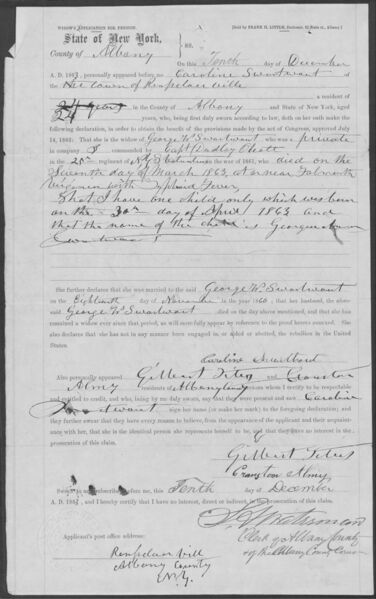 WIDOW'S APPLICATION FOR PENSION. [Sold by FRANK H. LITTLE, Stationer, 53 State st., Albany.]
State of New York,
County of Albany SS.
On this Tenth day of December
A. D. 1863, personally appeared before me Caroline Swartwout of
the town of Rensselaer Ville a resident of
in the County of Albany and State of New York, aged
24 years, who, being first duly sworn according to law, doth on her oath make the
following declaration, in order to obtain the benefits of the provisions made by the act of Congress, approved July
14, 1862: That she is the widow of George W. Swartwout who was a private
in company I commanded by Capt Dadley Olcott
in the 20th regiment of N.Y.S. Volunteers in the war of 1861, who died on the
Seventh day of March 1863, at or near Falmouth
Virginia with Typhoid Fever
That I have one child only which was born
on the 30th day of April 1863 and
that the name of the child is Georgeanna
Swartwout
She further declares that she was married to the said George W. Swartwout
on the Eighteenth day of November in the year 1860; that her husband, the aforesaid
George W Swartwout died on the day above mentioned, and that she has
remained a widow ever since that period, as will more fully appear by reference to the proof hereto annexed. She
also declares that she has not in any manner been engaged in, or aided or abetted, the rebellion in the
United States.
Caroline Swartwout
Also personally appeared Gilbert Titus and Cranston
Almy residents of Albany County persons whom I certify to be respectable
and entitled to credit, and who, being by me duly sworn, say that they were present and saw Caroline
Swartwout sign her name (or make her mark) to the foregoing declaration; and
they further swear that they have every reason to believe, from the appearance of the applicant and their acquaintance
with her, that she is the identical person she represents herself to be, and that they have no interest in the
prosecution of this claim.
Gilbert Titus
Cranston Almy
Sworn to and subscribed before me, this Tenth day of December
A. D. 1863, and I hereby certify that I have no interest, direct or indirect, in the prosecution of this claim.
Clerk of Albany County
Applicant's post office address:
Rensselaer Ville
Albany County
N.Y.